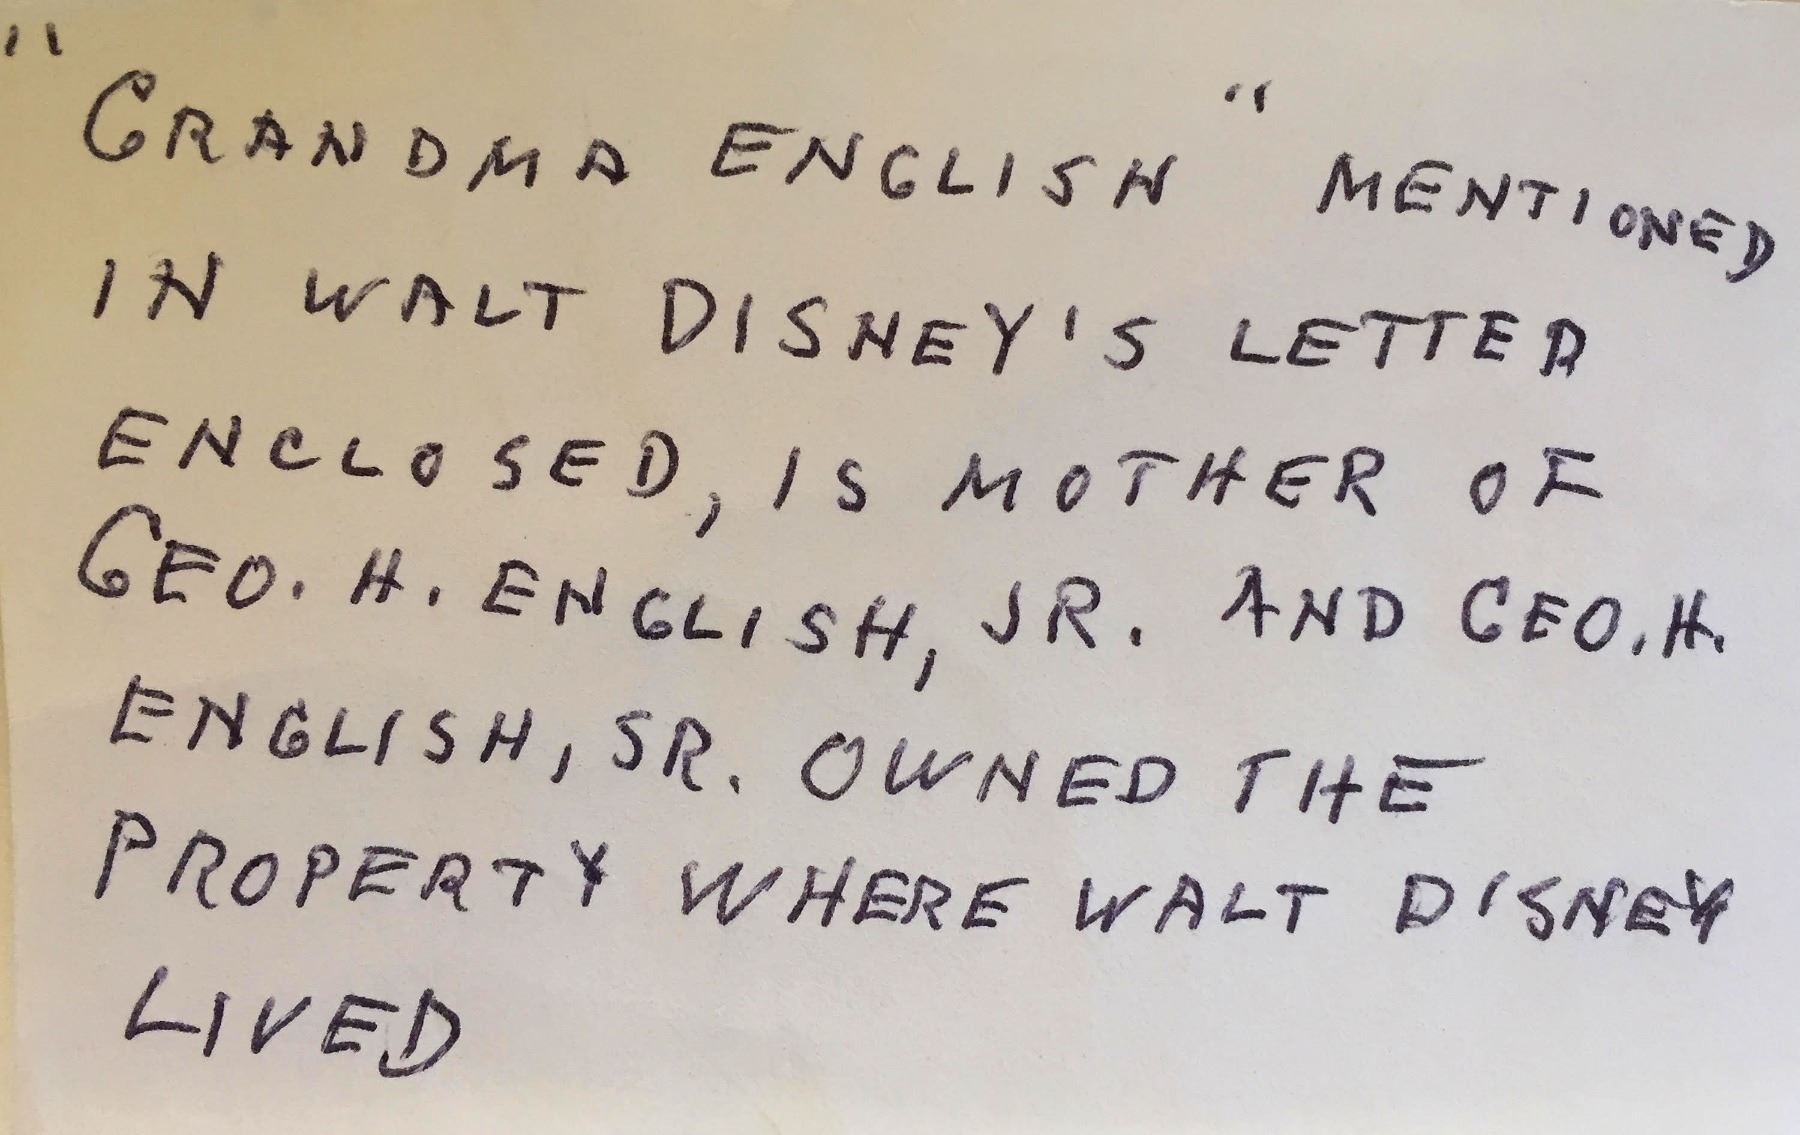 "GRANDMA ENGLISH" MENTIONED
IN WALT DISNEY'S LETTER
ENCLOSED, IS MOTHER OF
GEO. H. ENGLISH, JR. AND GEO. H.
ENGLISH, SR. OWNED THE
PROPERTY WHERE WALT DISNEY
LIVED